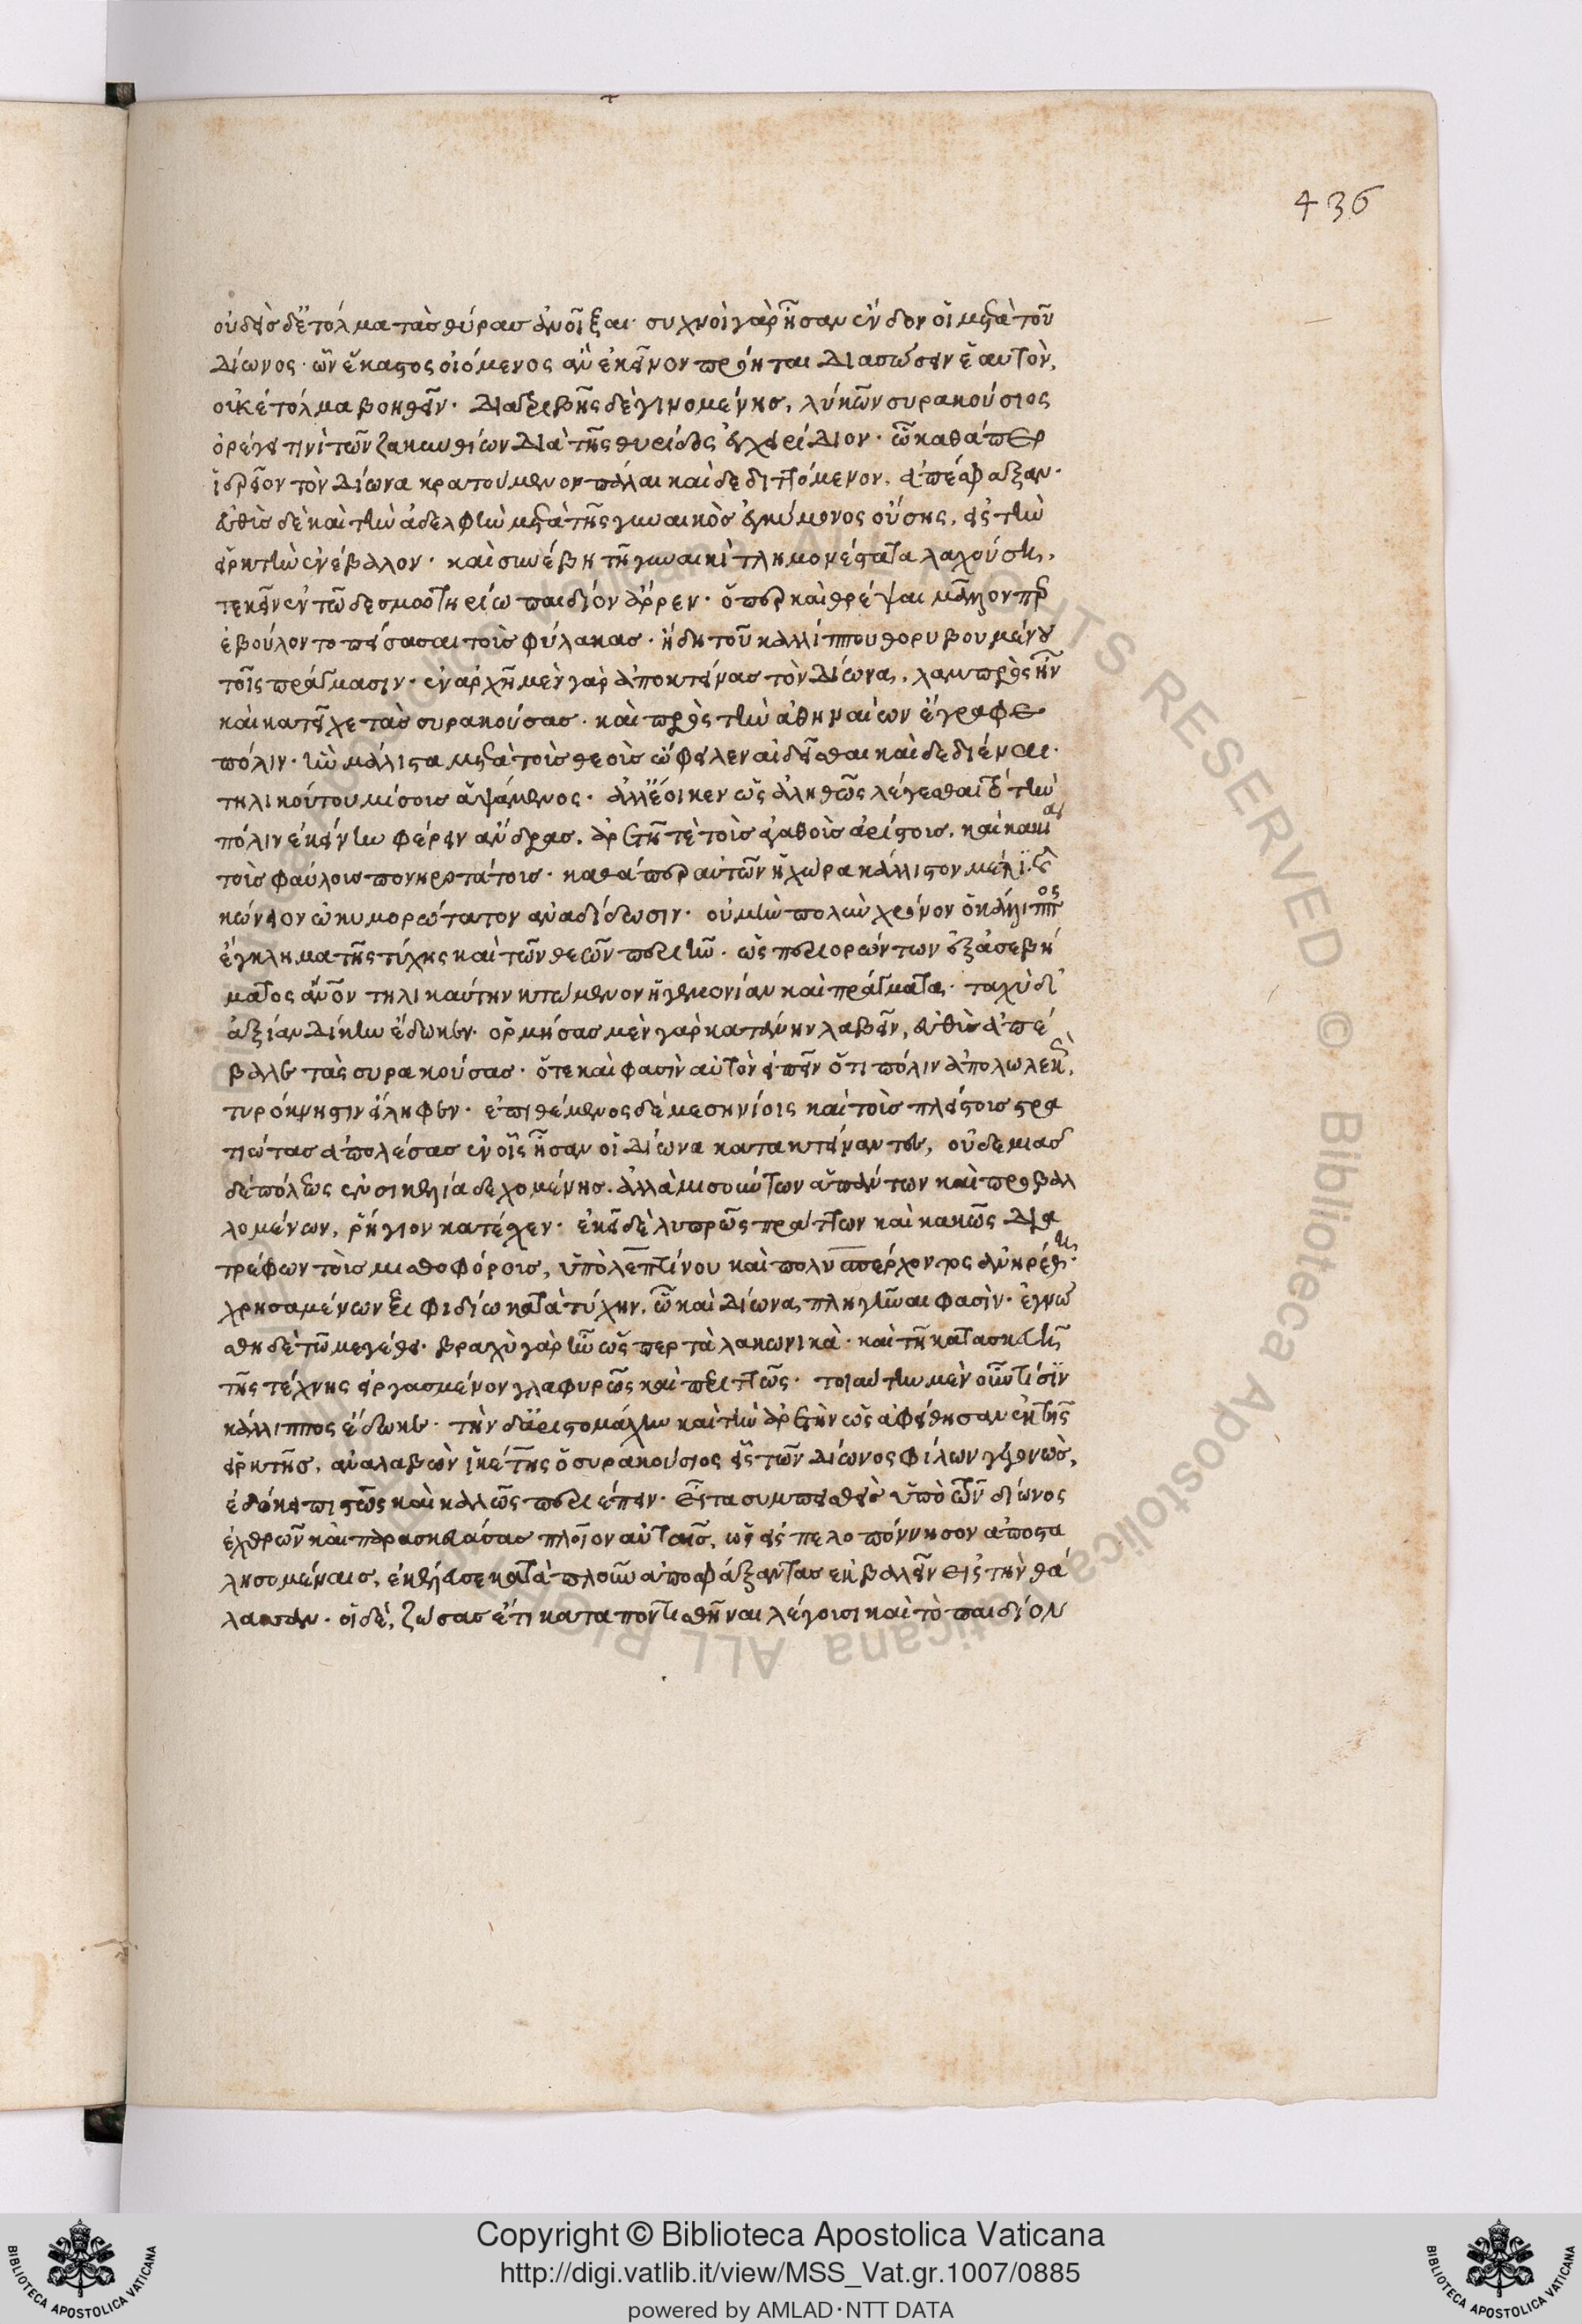 436
οὐδεὶς δ' ἐτόλμα τὰς θύρας ἀνοῖξαι· συχνοὶ γὰρ ἦσαν ἔνδον οἱ μετὰ τοῦ
Δίωνος· ὧν ἕκαστος οἰόμενος ἂν ἐκεῖνον πρόηται διασώσειν ἑαυτὸν,
οὐκ ἐτόλμα βοηθεῖν· διατριβῆς δὲ γινομένης, λύκων συρακούσιος
ὀρέγει τινὶ τῶν ζακυνθίων διὰ τῆς θυρίδος ἐγχειρίδιον· ᾧ καθάπερ
ἱερεῖον τὸν Δίωνα κρατούμενον πάλαι καὶ δεδιττόμενον, ἀπέσφαξαν·
εὐθὺς δὲ καὶ τὴν ἀδελφὴν μετὰ τῆς γυναικὸς ἐγκύμονος οὔσης, εἰς τὴν
εἱρκτὴν ἐνέβαλον· καὶ συνέβη τῇ γυναικὶ τλημονέστατα λαχούσῃ,
τεκεῖν ἐν τῷ δεσμωτηρίῳ παιδίον ἄρρεν· ὅπερ καὶ θρέψαι μᾶλλον παρ
εβούλοντο πείσασαι τοὺς φύλακας· ἤδη τοῦ καλλίππου θορυβουμένου
τοῖς πράγμασιν· ἐν ἀρχῇ μὲν γὰρ ἀποκτείνας τὸν Δίωνα, λαμπρὸς ἦν
καὶ κατεῖχε τὰς συρακούσας· καὶ πρὸς τὴν ἀθηναίων ἔγραφε
πόλιν· ἣν μάλιστα μετὰ τοὺς θεοὺς ὤφειλεν αἰδεῖσθαι καὶ δεδιέναι·
τηλικούτου μίσους ἁψάμενος· ἀλλ' ἔοικεν ὡς ἀληθῶς λέγεσθαι τὸ τὴν
πόλιν ἐκείνην φέρειν ἄνδρας, ἀρετῇ τε τοὺς ἀγαθοὺς ἀρίστους, καὶ κακίᾳ
τοὺς φαύλους πονηροτάτους· καθάπερ αὐτῶν ἡ χώρα κάλλιστον μέλι καὶ
κώνειον ὠκυμορώτατον ἀναδίδωσιν· οὐ μὴν πολὺν χρόνον ὁ κάλλιππος
ἔγκλημα τῆς τύχης καὶ τῶν θεῶν περιῆν· ὡς περιορώντων ἐξ ἀσεβή
ματος ἄνδρα τηλικαύτην κτώμενον ἡγεμονίαν καὶ πράγματα· ταχὺ δ'
ἀξίαν δίκην ἔδωκεν· ὁρμήσας μὲν γὰρ κατάνην λαβεῖν, εὐθὺς ἀπέ
βαλε τὰς συρακούσας· ὅτε καὶ φασὶν αὐτὸν εἰπεῖν ὅτι πόλιν ἀπολωλεκὼς,
τυρόκνηστιν εἴληφεν· ἐπιθέμενος δὲ μεσηνίοις καὶ τοὺς πλείστους στρα
τιώτας ἀπολέσας ἐν οἷς ἦσαν οἱ Δίωνα κατακτείναντες, οὐδεμιᾶς
δὲ πόλεως ἐν σικελίᾳ δεχομένης. ἀλλὰ μισούντων ἁπάντων καὶ προβαλ
λομένων, ῥήγιον κατέσχεν· ἐκεῖ δὲ λυπρῶς πράττων καὶ κακῶς δια
τρέφων τοὺς μισθοφόρους, ὑπὸ λεπτίνου καὶ πολυπέρχοντος ἀνῃρέθη·
χρησαμένων ξιφιδίῳ κατὰ τύχην, ᾧ καὶ Δίωνα πληγῆναι φασὶν· ἐγνώ
σθη δὲ τῷ μεγέθει· βραχὺ γὰρ ἦν ὥσπερ τὰ λακωνικὰ· καὶ τῇ κατασκευῇ
τῆς τέχνης εἰργασμένον γλαφυρῶς καὶ περιττῶς· τοιαύτην μὲν οὖν τίσιν
κάλλιππος ἔδωκε· τὴν δ' ἀριστομάχην καὶ τὴν ἀρετὴν ὡς ἀφείθησαν ἐκ τῆς
εἱρκτῆς, ἀναλαβὼν ἱκέτης ὁ συρακούσιος εἷς τῶν Δίωνος φίλων γεγονὼς,
ἐδόκει πιστῶς καὶ καλῶς περιέπειν· εἶτα συμπεισθεὶς ὑπὸ τῶν δίωνος
ἐχθρῶν καὶ παρασκευάσας πλοῖον αὐταῖς, ὡς εἰς πελοπόννησον ἀποστα
λησομέναις, ἐκέλευσε κατὰ πλοῦν ἀποσφάξαντας ἐκβαλεῖν εἰς τὴν θά
λασσαν· οἱ δὲ, ζώσας ἔτι καταποντισθῆναι λέγουσι καὶ τὸ παιδίον
Copyright © Biblioteca Apostolica Vaticana
http://digi.vatlib.it/view/MSS_Vat.gr.1007/0885
powered by AMLAD·NTT DATA